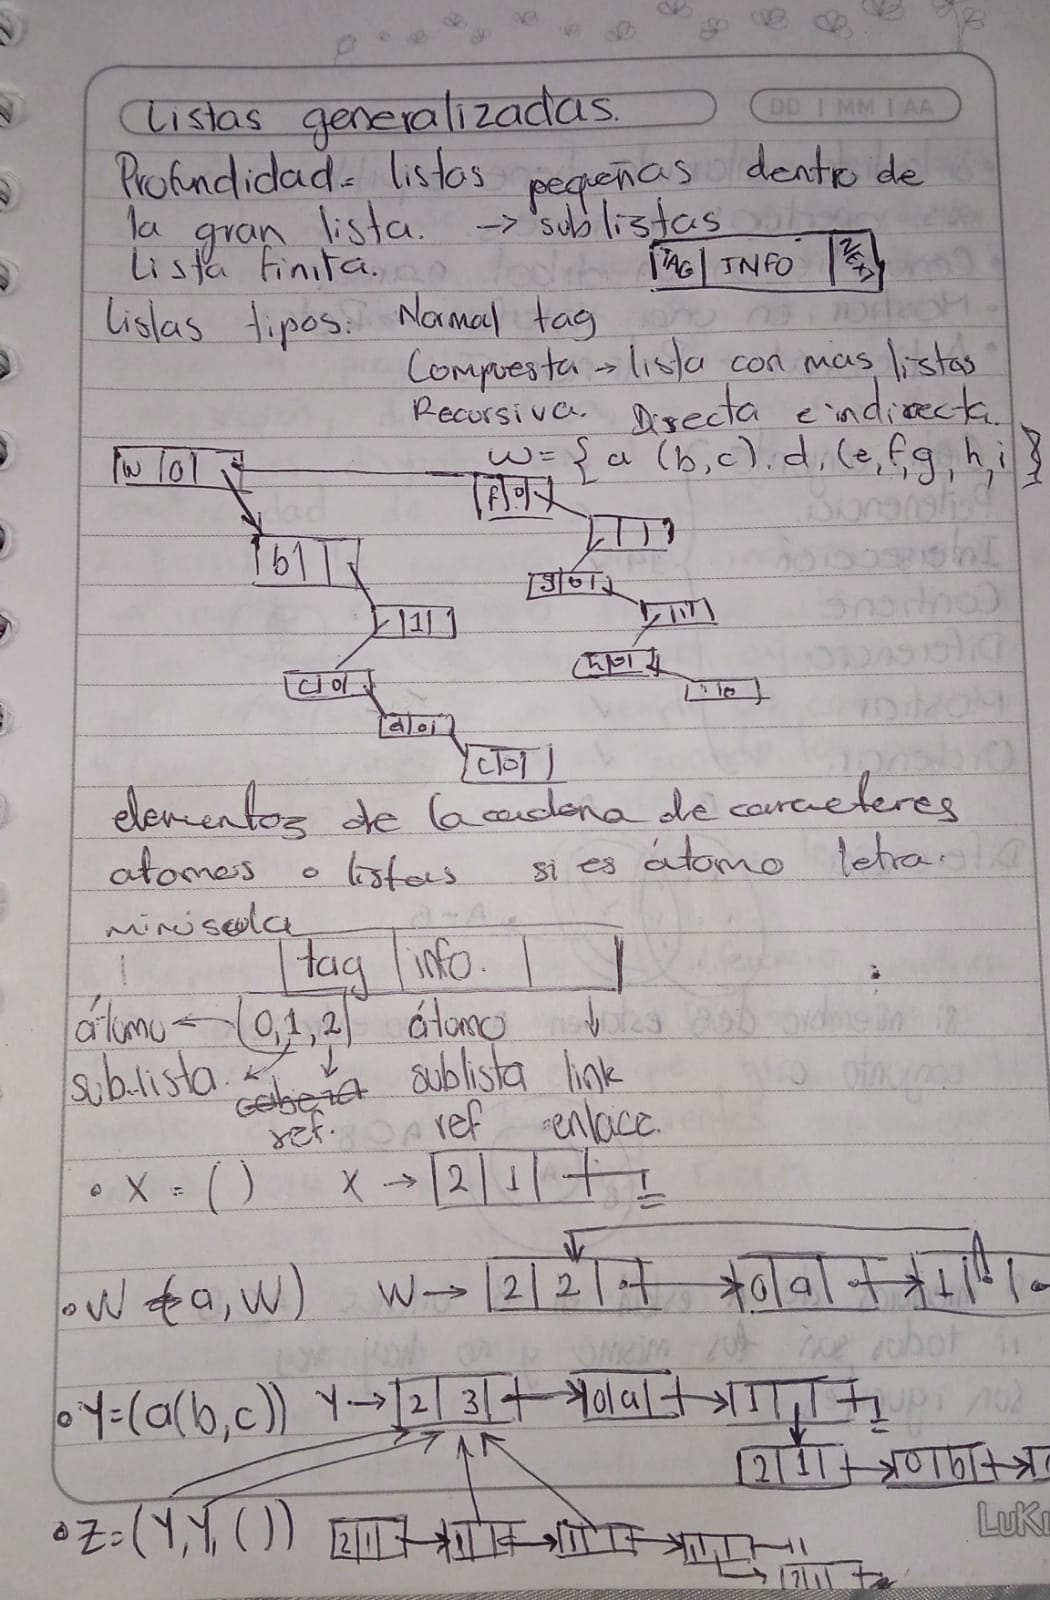 Listas generalizadas.
DD | MM | AA
Profundidad = listas pequeñas dentro de
la gran lista. → sublistas
Lista finita.
TAG | INFO
Listas tipos: Normal tag
Compuesta → lista con mas listas
Recursiva. Directa e indirecta.
W = { a (b,c), d, (e, f, g, h, i }
W | 0 |
f | 0 |
b | |
g | 0 |
| 1 |
h | 0 |
c | 0 |
i | 0
d | 0 |
c | 0 |
elementos de la cadena de caracteres
atomos o listas si es átomo letra.
minúscula
tag | info. |
átomo ← (0, 1, 2) átomo ↓
sub.lista. ↙ ↓ sublista link
ref. ref enlace.
• X = ( ) X → | 2 | 1 |
• W = (a, W) W → | 2 | 2 | → | 0 | a | → | 1 |
• Y = (a(b,c)) Y → | 2 | 3 | → | 0 | a | → | 1 |
| 2 | 1 | → | 0 | b | →
• Z = (Y, Y, ( )) | 2 | 1 | → | 1 | → | 1 | → | 1 |
| 2 | 1 |